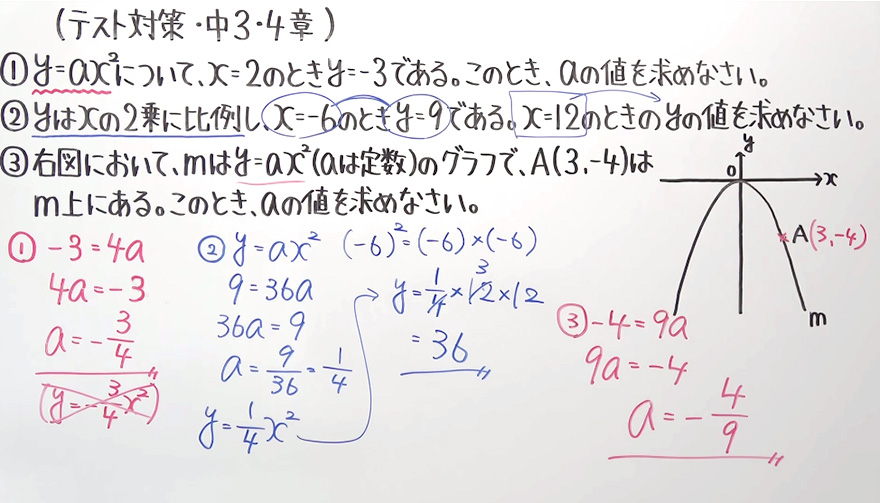 (テスト対策・中3・4章)
①y=ax²について、x=2のときy=-3である。このとき、aの値を求めなさい。
②yはxの2乗に比例し、x=-6のときy=9である。x=12のときのyの値を求めなさい。
③右図において、mはy=ax²(aは定数)のグラフで、A(3,-4)は
m上にある。このとき、aの値を求めなさい。
① -3=4a
4a=-3
a=-3/4
(y=-3/4x²)
② y=ax² (-6)²=(-6)×(-6)
9=36a
36a=9
a=9/36=1/4
y=1/4x²
y=1/4×12×12
3
=36
y
O
x
A(3,-4)
m
③ -4=9a
9a=-4
a=-4/9